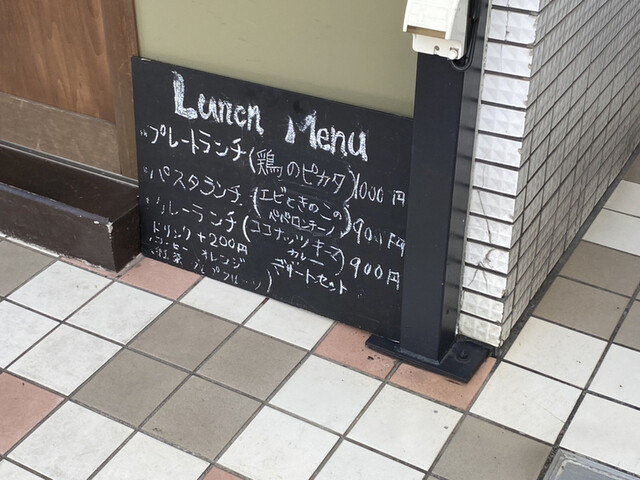 Lunch Menu
"プレートランチ(鶏のピカタ)1000円
"パスタランチ(エビときのこのペペロンチーノ)900円
カレーランチ(ココナッツキーマカレー)900円
ドリンク+200円 デザートセット
コーヒー オレンジ
紅茶